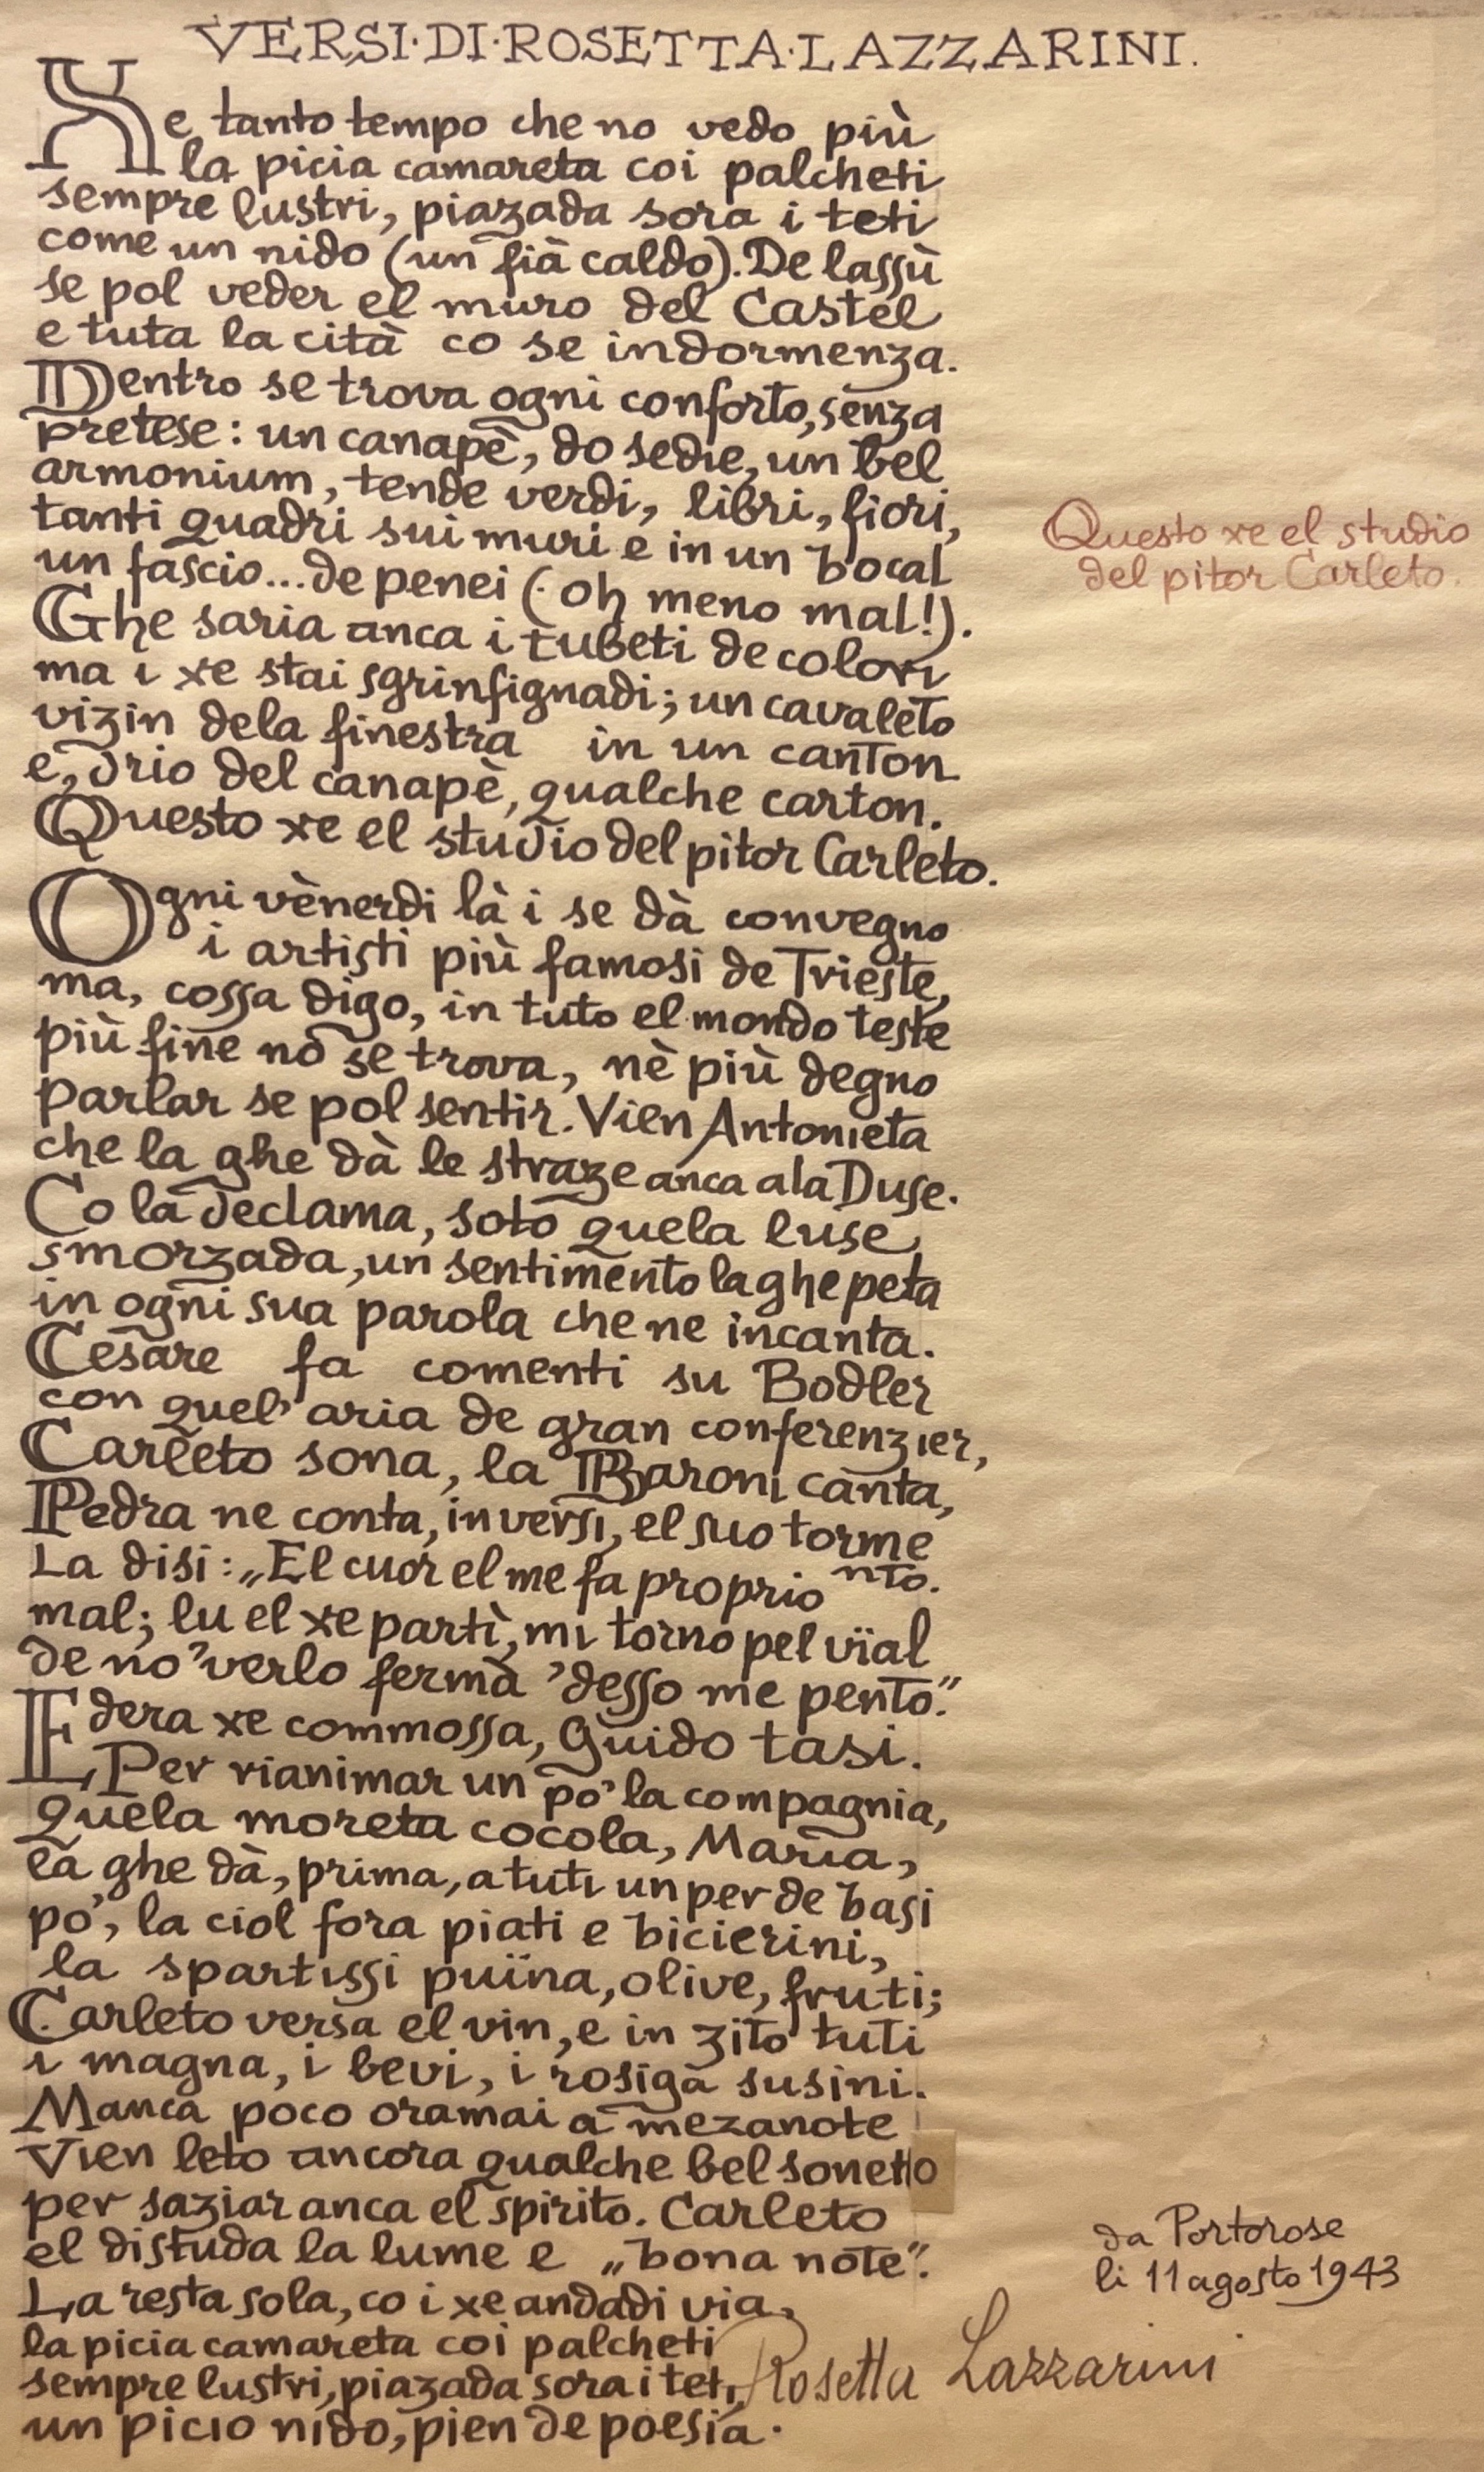 VERSI·DI·ROSETTA·LAZZARINI.
Xe tanto tempo che no vedo più
la picia camareta coi palcheti
sempre lustri, piazada sora i teti
come un nido (un fià caldo). De lassù
se pol veder el muro del Castel
e tuta la cità co se indormenza.
Dentro se trova ogni conforto, senza
pretese: un canapè, do sedie, un bel
armonium, tende verdi, libri, fiori,
tanti quadri sui muri e in un bocal
un fascio... de penei (oh meno mal!).
Ghe saria anca i tubeti de colori
ma i xe stai sgrinfignadi; un cavaleto
vizin dela finestra in un canton
e, drio del canapè, qualche carton.
Questo xe el studio del pitor Carleto.
Questo xe el studio
del pitor Carleto.
Ogni vènerdi là i se dà convegno
i artisti più famosi de Trieste,
ma, cossa digo, in tuto el mondo teste
più fine no se trova, nè più degno
parlar se pol sentir. Vien Antonieta
che la ghe dà le straze anca ala Duse.
Co la declama, soto quela luse
smorzada, un sentimento la ghe peta
in ogni sua parola che ne incanta.
Cesare fa comenti su Bodler
con quel' aria de gran conferenzier,
Carleto sona, la Baroni canta,
Pedra ne conta, in versi, el suo torme
nto.
La disi: „El cuor el me fa proprio
mal; lu el xe partì, mi torno pel vïal
de no' verlo fermà 'desso me pento".
Edera xe commossa, Guido tasi.
Per rianimar un po' la compagnia,
quela moreta cocola, Maria,
la ghe dà, prima, a tuti un per de basi
po', la ciol fora piati e bicierini,
la spartissi puïna, olive, fruti;
Carleto versa el vin, e in zito tuti
i magna, i bevi, i rosiga susini.
Manca poco oramai a mezanote
Vien leto ancora qualche bel sonetto
per saziar anca el spirito. Carleto
el distuda la lume e „bona note".
La resta sola, co i xe andadi via,
la picia camareta coi palcheti
sempre lustri, piazada sora i teti,
un picio nido, pien de poesia.
da Portorose
li 11 agosto 1943
Rosetta Lazzarini